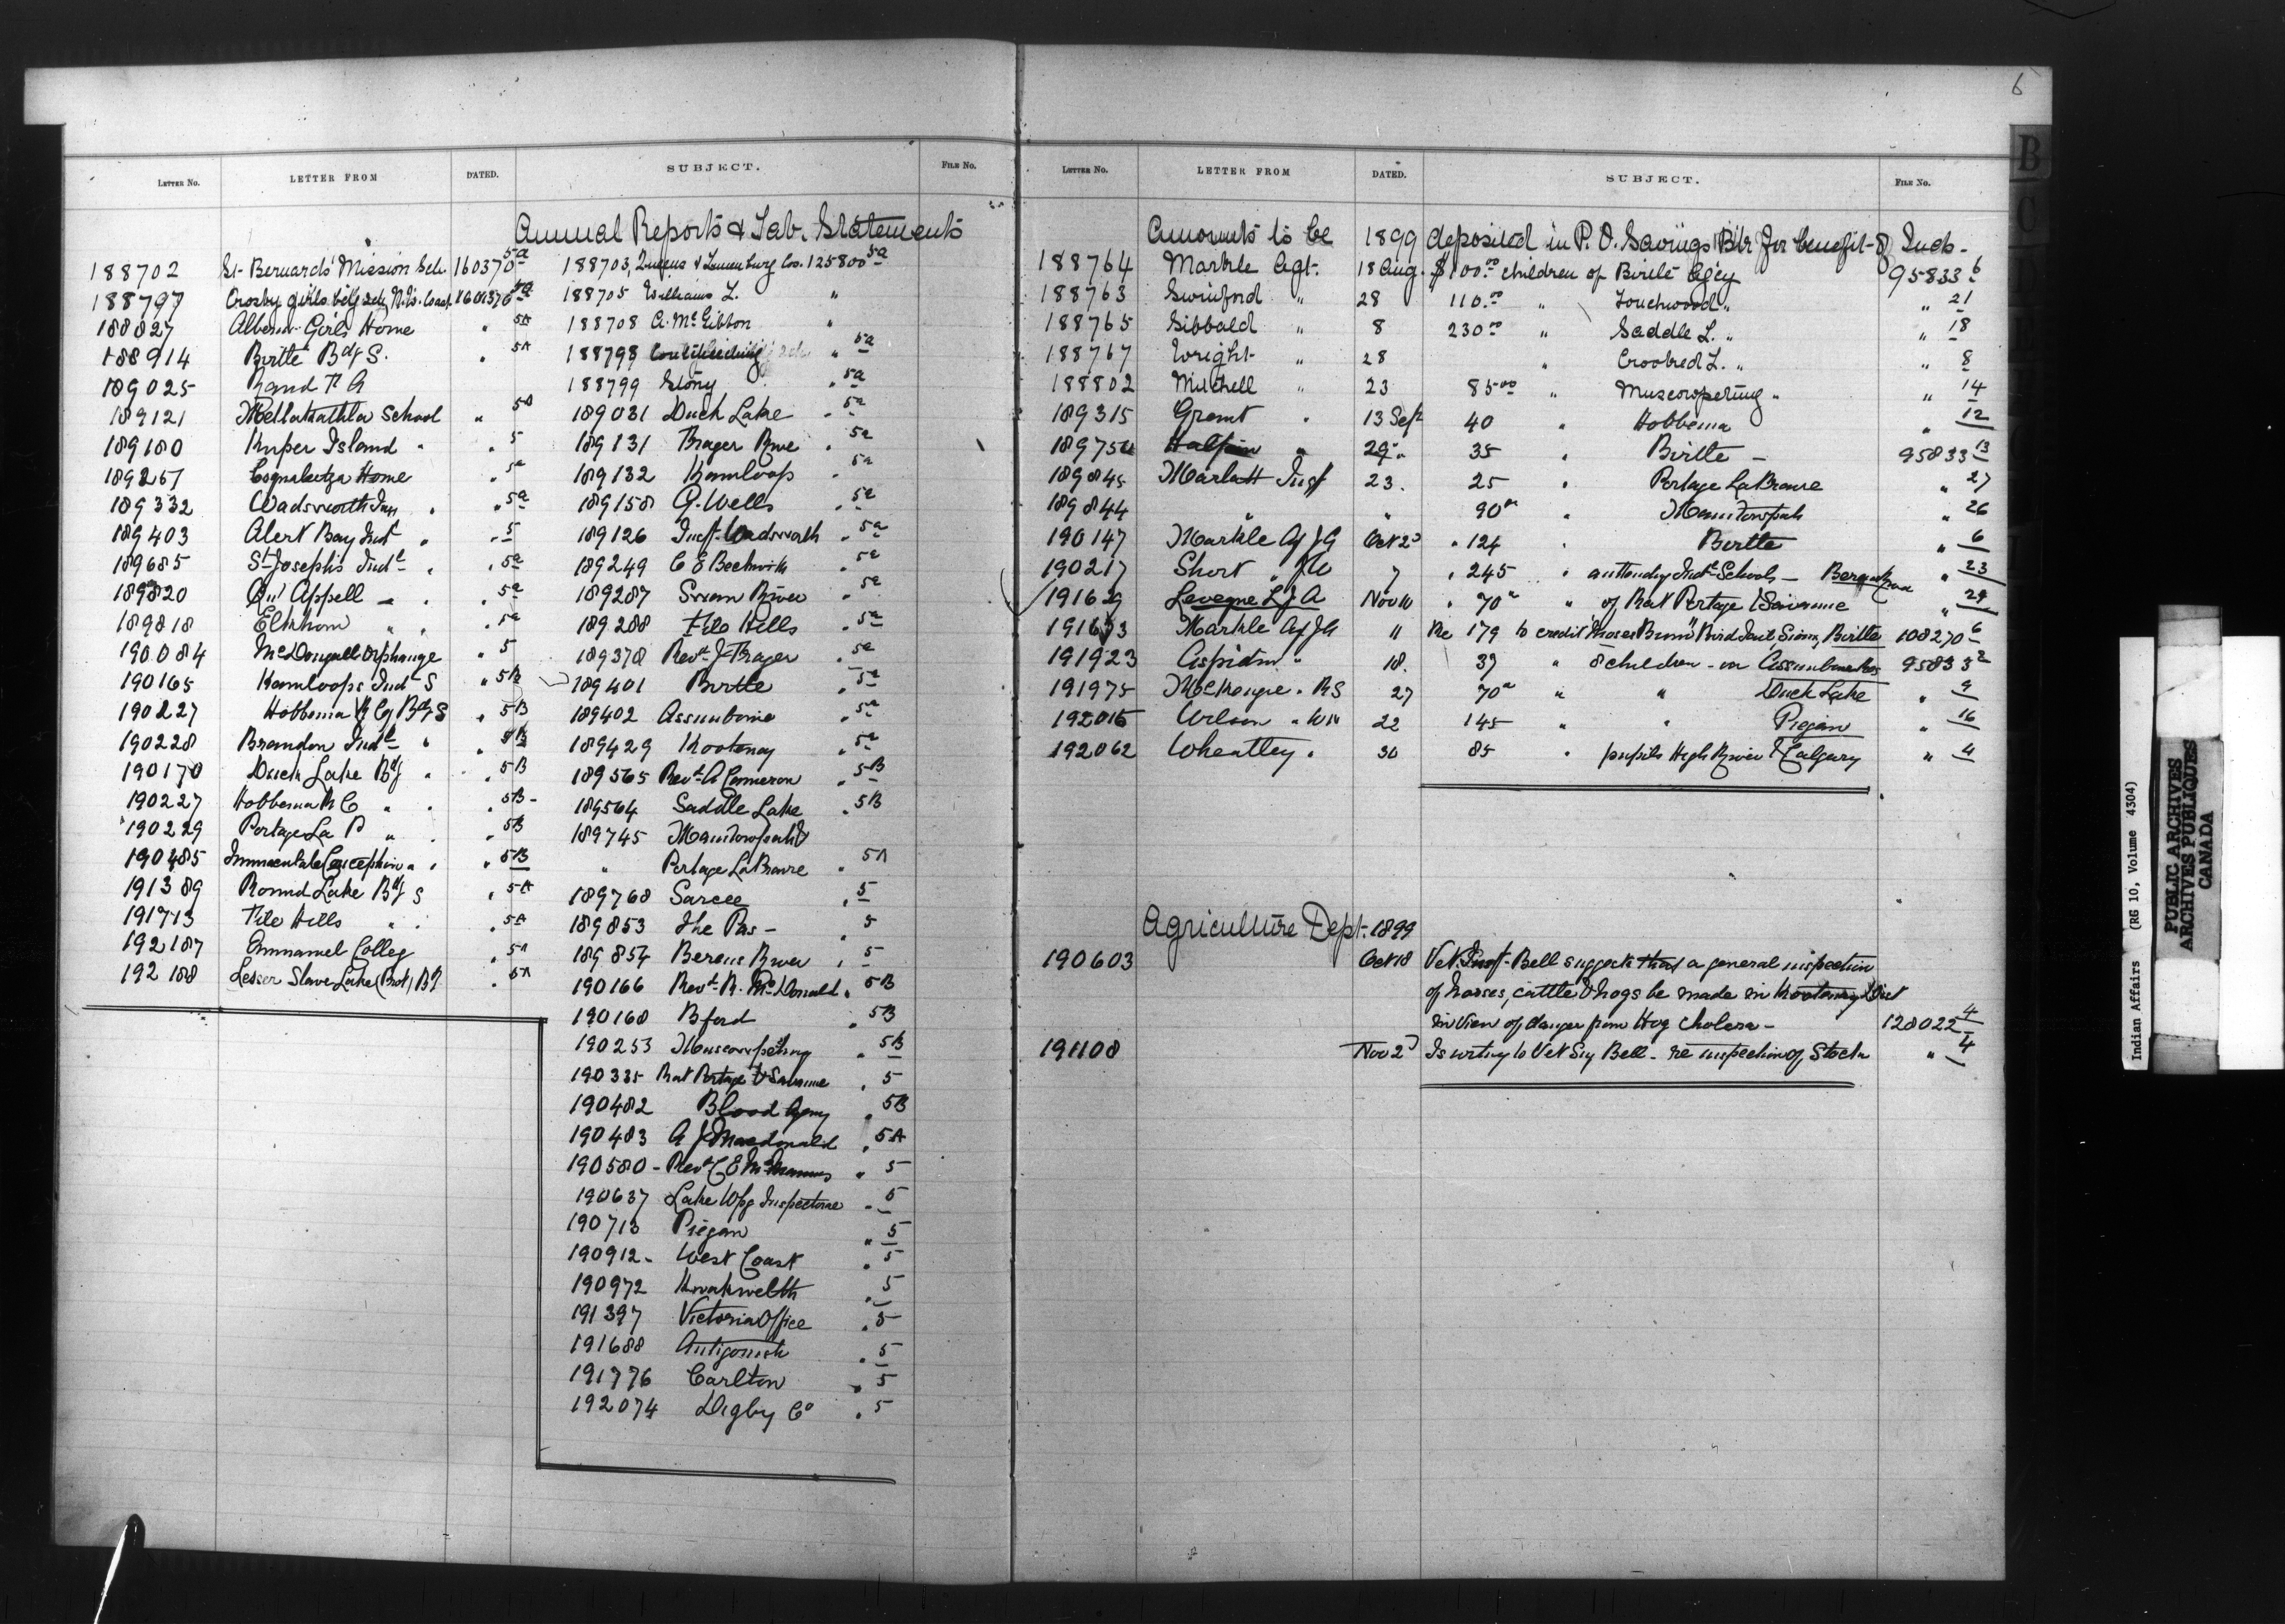 6
LETTER NO. LETTER FROM DATED. SUBJECT. FILE NO.
Annual Reports & Tab. Statements
188702 St. Bernards Mission Sch. 160370 5a
188797 Crosby Girls 160370 5a
188827 Alberni Girls Home " 5A
188914 Birtle Bdg S. " 5A
189025 Rand T A
189121 Metlakathla School " 5A
189180 Kuper Island " " 5
189257 Coqualeetza Home " 5a
189332 Wadsworth Ins " 5a
189403 Alert Bay Indl " " 5
189685 St Josephs Indl " " 5a
189820 Qu'Appell " " 5a
189818 Elkhorn " " 5a
190084 McDougall Orphanage " 5
190165 Kamloops Indl S " 5B
190227 Hobbema R C Bdg S " 5B
190228 Brandon Indl " " 5B
190170 Duck Lake Bdg " " 5B
190227 Hobbema R C " " 5B
190229 Portage La P " " 5B
190485 Immaculate Conception " " 5B
191389 Round Lake Bdg S " 5A
191713 File Hills " " 5A
192187 Emmanuel Colleg " 5A
192188 Lesser Slave Lake (Prot) Bdg " 5A
188703, Queens & Lunenburg Co. 125800 5a
188705 Williams L. "
188708 A. McGibbon "
188798 " 5a
188799 Stony " 5a
189031 Duck Lake " 5a
189131 Frager Rive " 5a
189132 Kamloops " 5a
189158 G. Wells " 5a
189126 Insp. Wadsworth " 5a
189249 C E Beckwith " 5a
189287 Swan River " 5a
189288 File Hills " 5a
189378 Revd. J. Frager " 5a
189401 Birtle " 5a
189402 Assiniboine " 5a
189429 Kootenay " 5a
189565 Revd. A Cameron " 5B
189564 Saddle Lake " 5B
189745 Manitowpah &
" Portage La Prairie " 5A
189768 Sarcee " 5
189853 The Pas - " 5
189854 Berens River " 5
190166 Revd. R. McDonald " 5B
190168 Bford " 5B
190253 Muscowpetung " 5B
190335 Rat Portage & Savanne " 5
190482 Blood Agency " 5B
190483 A J Macdonald " 5A
190580 - Revd C E McManus " 5
190637 Lake Wpg Inspectorate " 5
190713 Piegan " 5
190912 - West Coast " 5
190972 Kwakwelth " 5
191397 Victoria Office " 5
191688 Antigonish " 5
191776 Carlton " 5
192074 Digby Co " 5
LETTER NO. LETTER FROM DATED. SUBJECT. FILE NO.
Amounts to be 1899 deposited in P. O. Savings Bk for benefit of Inds -
188764 Markle Agt. 18 Aug. $100.00 children of Birtle Agcy 95833 6
188763 Swinford " 28 110.00 " Touchwood " " 21
188765 Sibbald " 8 230.00 " Saddle L. " " 18
188767 Wright " 28 " Crooked L. " " 8
188802 Mitchell " 23 85.00 " Muscowpetung " " 14
189315 Grant " 13 Sep 40 " Hobbema " 12
189756 Halpin " 29 " 35 " Birtle - 95833 13
189845 Marlatt Insp 23. 25 " Portage La Prairie " 27
189844 " " 90 " Manitowpah " 26
190147 Markle Ag J A Oct 23 " 124 " Birtle " 6
190217 Short " J W 7 " 245 " attending Indl Schools - Berens River " 23
191629 Levegne L J A Nov 10 " 70 " of Rat Portage & Savanne " 29
191673 Markle Ag J A 11 Re 179 to credit "Moses Bunn" Bird Tail, Sioux, Birtle 108270 6
191923 Aspidin " 18. 39 " 8 children - on Assiniboine Res 95833 2
191975 McKenzie " R S 27 70 " " Duck Lake " 9
192015 Wilson " R N 22 145 " " Piegan " 16
192062 Wheatley " 30 85 " pupils High River & Calgary " 4
Agriculture Dept. 1899
190603 Oct 18 Vet. Insp. Bell suggests that a general inspection
of horses, cattle & hogs be made in Kootenay Dist
in view of danger from Hog Cholera - 128022 4
191108 Nov 23 Is writing to Vet Surg Bell - re inspection of Stock " 4
Indian Affairs (RG 10, Volume 4304)
PUBLIC ARCHIVES
ARCHIVES PUBLIQUES
CANADA
B
C